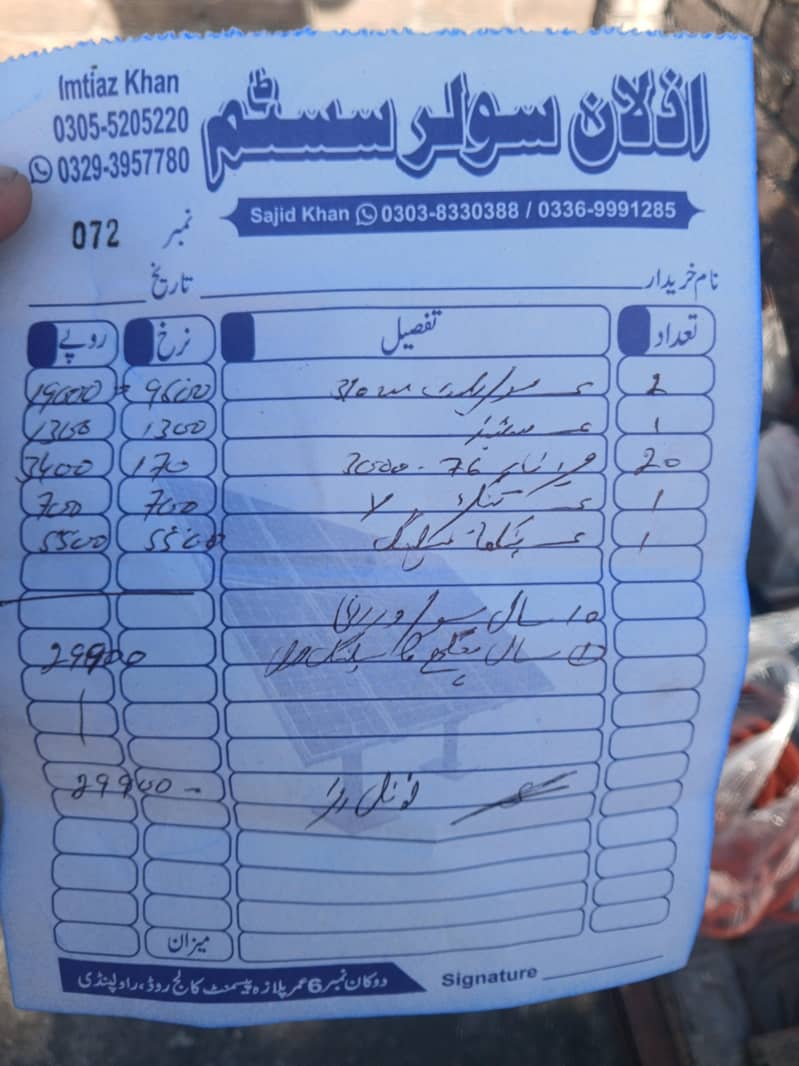 Imtiaz Khan
0305-5205220
0329-3957780
اذلان سولر سسٹم
Sajid Khan 0303-8330388 / 0336-9991285
نمبر 072
نام خریدار
تاریخ
تعداد تفصیل نرخ روپے
2 310 9500 19000
1 1300 1300
20 76 170 3400
1 700 700
1 پنکھا 5500 5500
10 سال
سال
29900
ٹوٹل
29900
میزان
دوکان نمبر 6 عمر پلازہ بیسمنٹ کالج روڈ، راولپنڈی
Signature